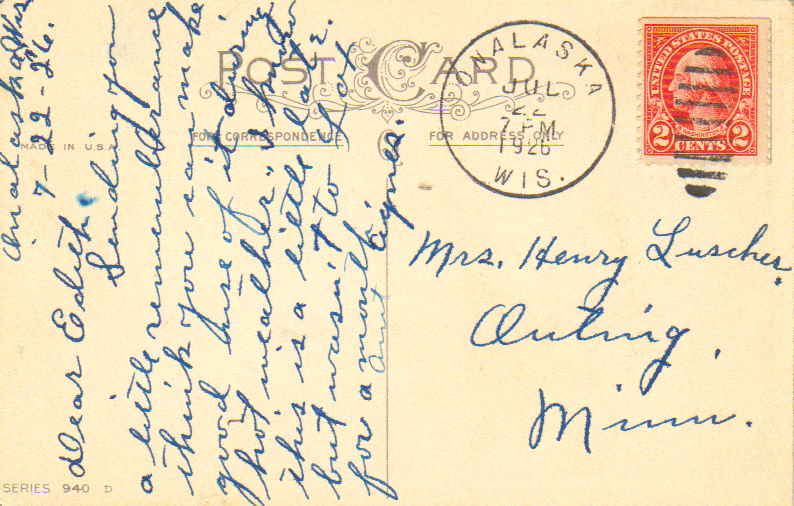 POST CARD
FOR CORRESPONDENCE
FOR ADDRESS ONLY
MADE IN U.S.A.
SERIES 940 D
ONALASKA
JUL
22
7 PM
1926
WIS.
UNITED STATES POSTAGE
2 CENTS 2
Onalaska Wis
7-22-26.
Dear Edith.
Sending you
a little remembrance
think you can make
good use of it during
hot weather, I know
this is a little late.
but wasn't to
for a month
Agnes.
Aunt
Mrs. Henry Luscher.
Outing,
Minn.